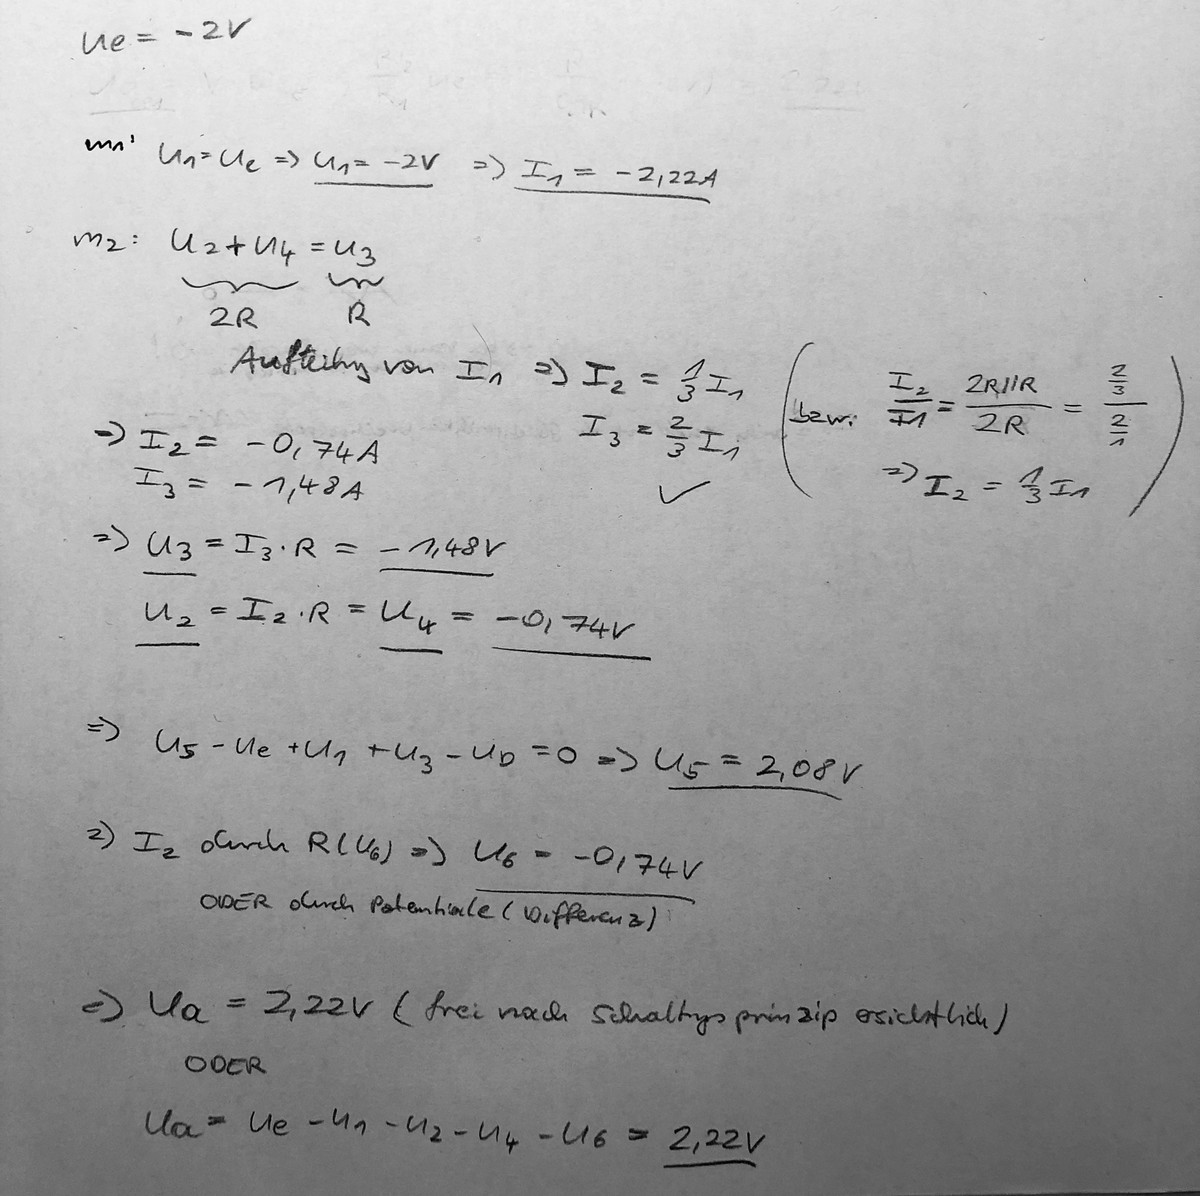 Ue = -2V
m1: U1 = Ue => U1 = -2V => I1 = -2,22A
m2: U2 + U4 = U3
2R R
Aufteilung von I1 => I2 = 1/3 I1 ( bzw: I2/I1 = 2R||R / 2R = 2/3 / 2/1
=> I2 = -0,74A I3 = 2/3 I1
I3 = -1,48A ✓ => I2 = 1/3 I1 )
=> U3 = I3 · R = -1,48V
U2 = I2 · R = U4 = -0,74V
=> U5 - Ue + U1 + U3 - UD = 0 => U5 = 2,08V
=> I2 durch R(U6) => U6 = -0,74V
ODER durch Potentiale (Differenz)
=> Ua = 2,22V (frei nach Schaltungsprinzip ersichtlich)
ODER
Ua = Ue - U1 - U2 - U4 - U6 = 2,22V